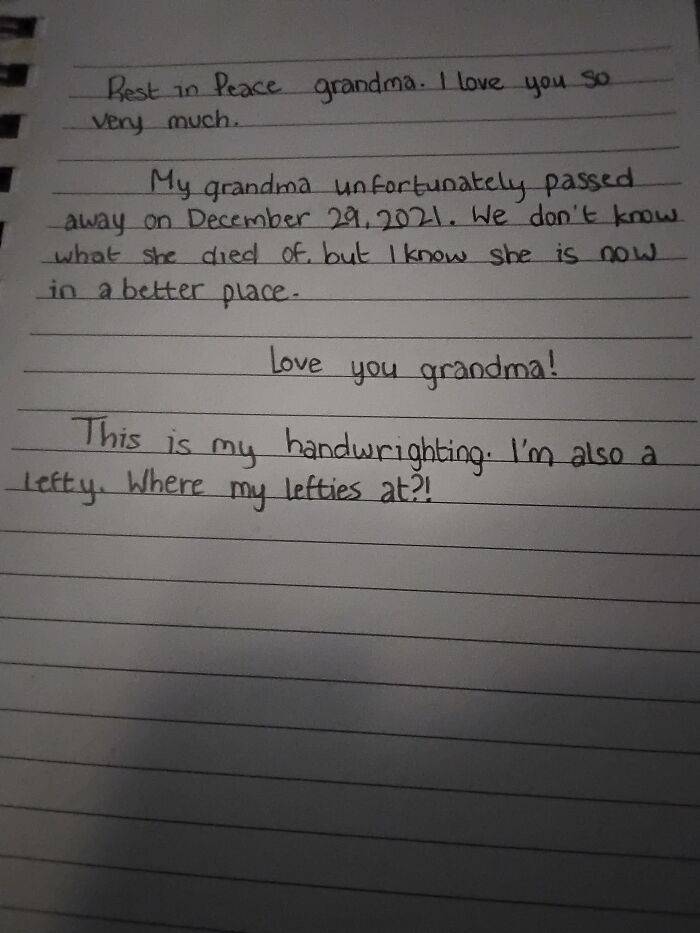 Rest in Peace grandma. I love you so
very much.
My grandma unfortunately passed
away on December 29, 2021. We don't know
what she died of, but I know she is now
in a better place.
Love you grandma!
This is my handwrighting. I'm also a
lefty. Where my lefties at?!